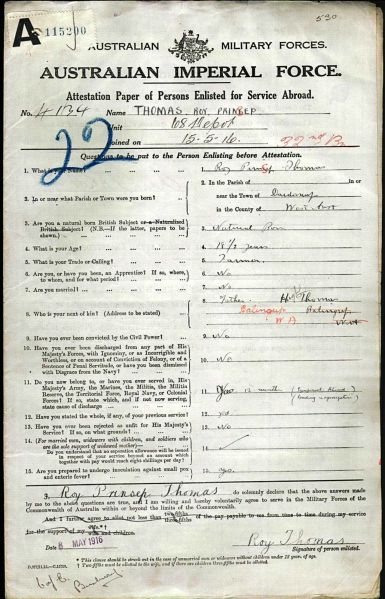 530
A 115200
AUSTRALIAN MILITARY FORCES.
AUSTRALIAN IMPERIAL FORCE.
Attestation Paper of Persons Enlisted for Service Abroad.
No. 4134 Name THOMAS, ROY PRINSEP
Unit 68 Depot
Joined on 15-5-16
22
Questions to be put to the Person Enlisting before Attestation.
1. What is your Name? 1. Roy Prinsep Thomas
2. In or near what Parish or Town were you born? 2. In the Parish of in or
near the Town of
in the County of West Aust
3. Are you a natural born British Subject or a Naturalized
British Subject? (N.B.—If the latter, papers to be
shown.) 3. Natural Born
4. What is your Age? 4. 18 7/12 years
5. What is your Trade or Calling? 5. Farmer
6. Are you, or have you been, an Apprentice? If so, where,
to whom, and for what period? 6. No
7. Are you married? 7. No
8. Who is your next of kin? (Address to be stated) 8. Father Thomas
Balingup Balingup
W A West
9. Have you ever been convicted by the Civil Power? 9. No
10. Have you ever been discharged from any part of His
Majesty's Forces, with Ignominy, or as Incorrigible and
Worthless, or on account of Conviction of Felony, or of a
Sentence of Penal Servitude, or have you been dismissed
with Disgrace from the Navy? 10. No
11. Do you now belong to, or have you ever served in, His
Majesty's Army, the Marines, the Militia, the Militia
Reserve, the Territorial Force, Royal Navy, or Colonial
Forces? If so, state which, and if not now serving,
state cause of discharge 11. months
12. Have you stated the whole, if any, of your previous service? 12. yes
13. Have you ever been rejected as unfit for His Majesty's
Service? If so, on what grounds? 13. No
14. (For married men, widowers with children, and soldiers who
are the sole support of widowed mother)—
Do you understand that no separation allowance will be issued
in respect of your service beyond an amount which
together with pay would reach eight shillings per day? 14.
15. Are you prepared to undergo inoculation against small pox
and enteric fever? 15. yes.
I, Roy Prinsep Thomas do solemnly declare that the above answers made
by me to the above questions are true, and I am willing and hereby voluntarily agree to serve in the Military Forces of the
Commonwealth of Australia within or beyond the limits of the Commonwealth.
And I further agree to allot not less than two-fifths three-fifths of the pay payable to me from time to time during my service
for the support of my wife. wife and children.
Date 8 MAY 1916
Roy Thomas
Signature of person enlisted.